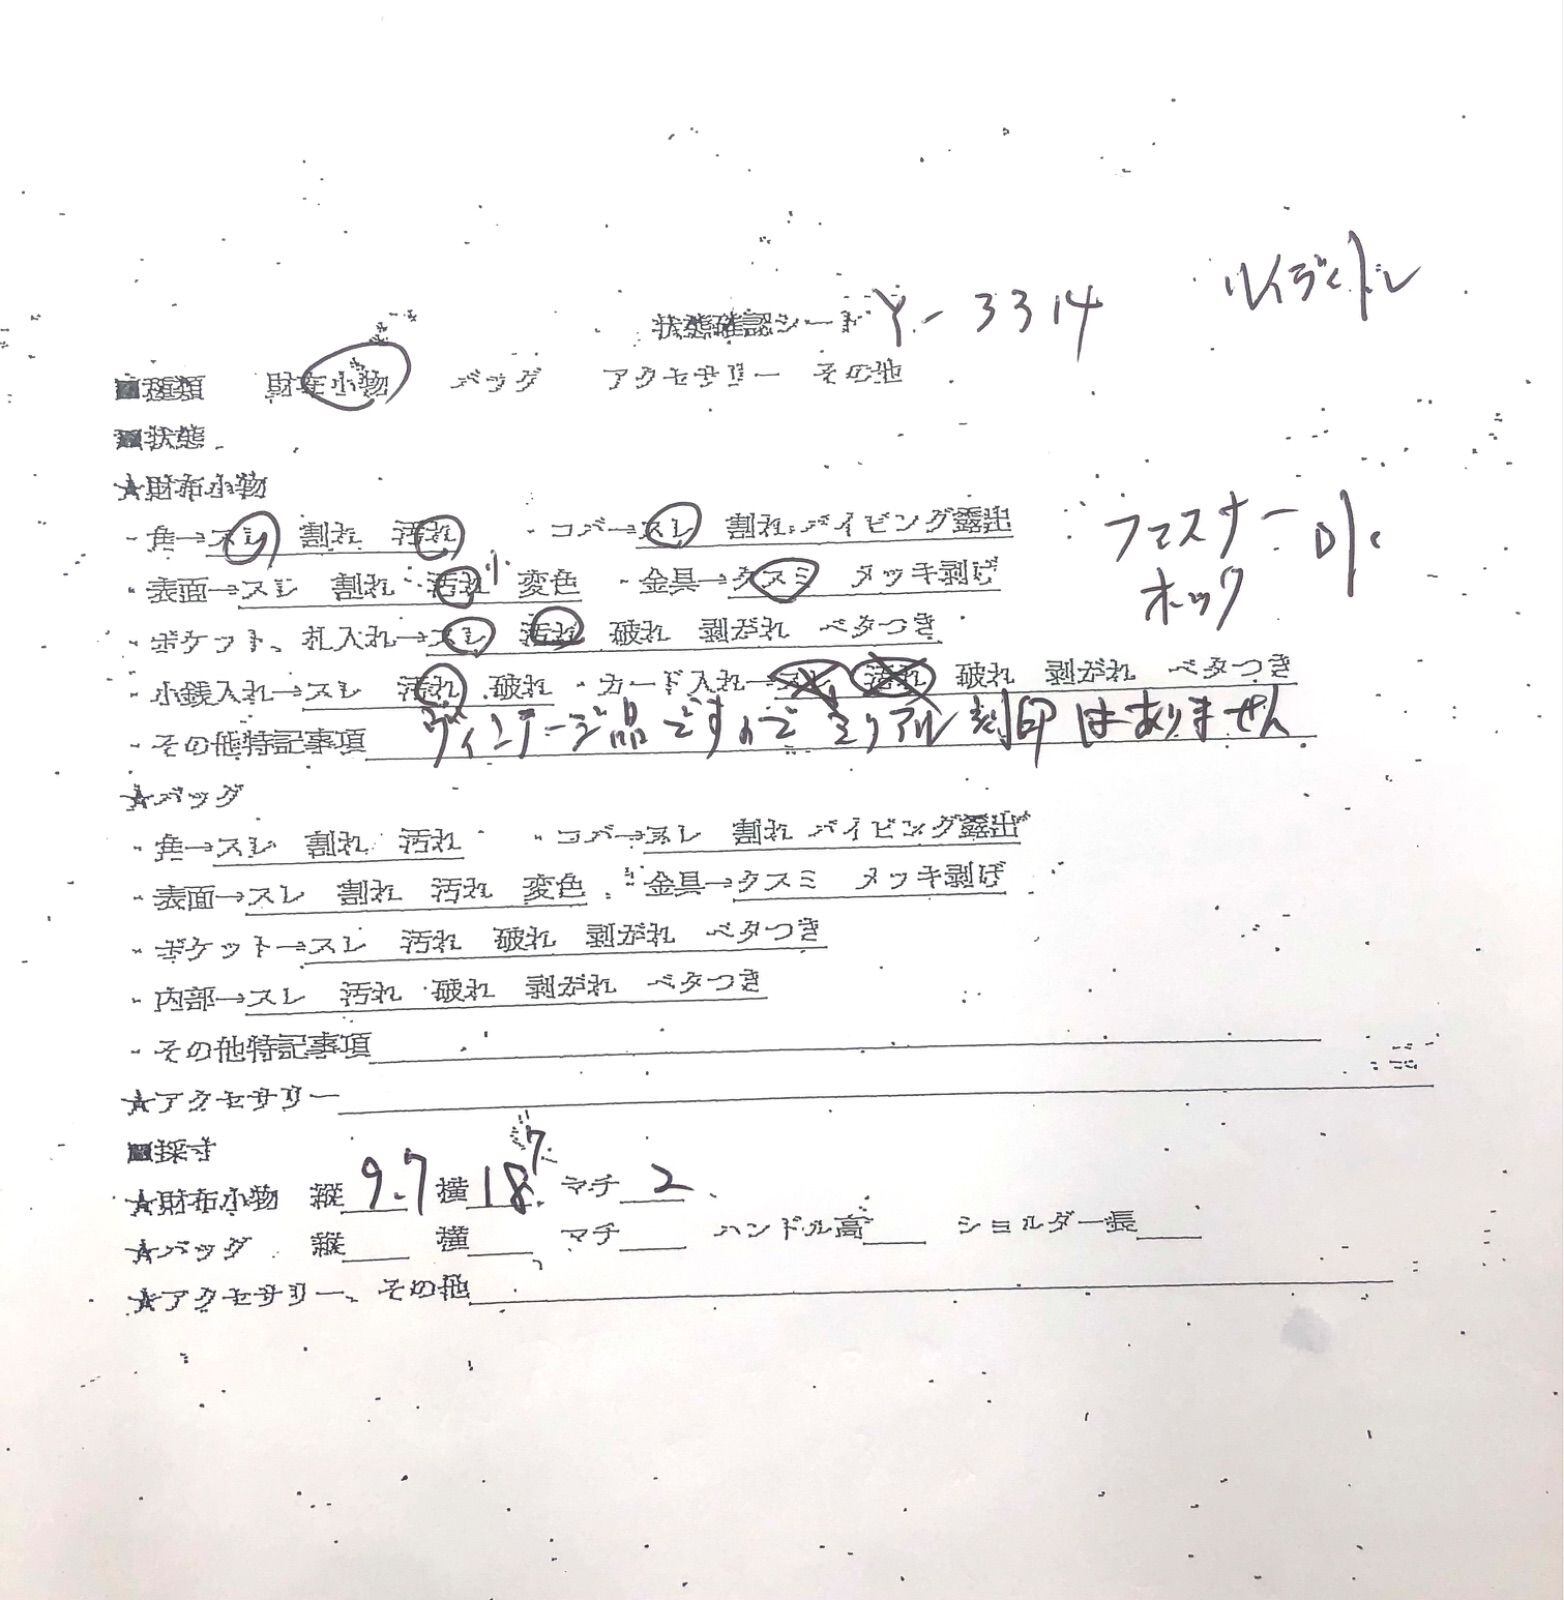 状態確認シート Y-3314
■種類 財布小物 バッグ アクセサリー その他
■状態
★財布小物
・角→スレ 割れ 汚れ ・コバ→スレ 割れ パイピング露出
ファスナー
・表面→スレ 割れ 汚れ 小 変色 ・金具→クスミ メッキ剥げ
ホック
・ポケット、札入れ→スレ 汚れ 破れ 剥がれ ベタつき
・小銭入れ→スレ 汚れ 破れ ・カード入れ→スレ 汚れ 破れ 剥がれ ベタつき
・その他特記事項 ヴィンテージ品ですので シリアル刻印はありません
★バッグ
・角→スレ 割れ 汚れ ・コバ→スレ 割れ パイピング露出
・表面→スレ 割れ 汚れ 変色 ・金具→クスミ メッキ剥げ
・ポケット→スレ 汚れ 破れ 剥がれ ベタつき
・内部→スレ 汚れ 破れ 剥がれ ベタつき
・その他特記事項
★アクセサリー
■採寸
★財布小物 縦 9.7 横 18.7 マチ 2
★バッグ 縦 横 マチ ハンドル高 ショルダー長
★アクセサリー、その他